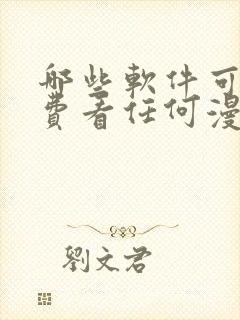 哪些軟件可
費看任何漫
劉文君